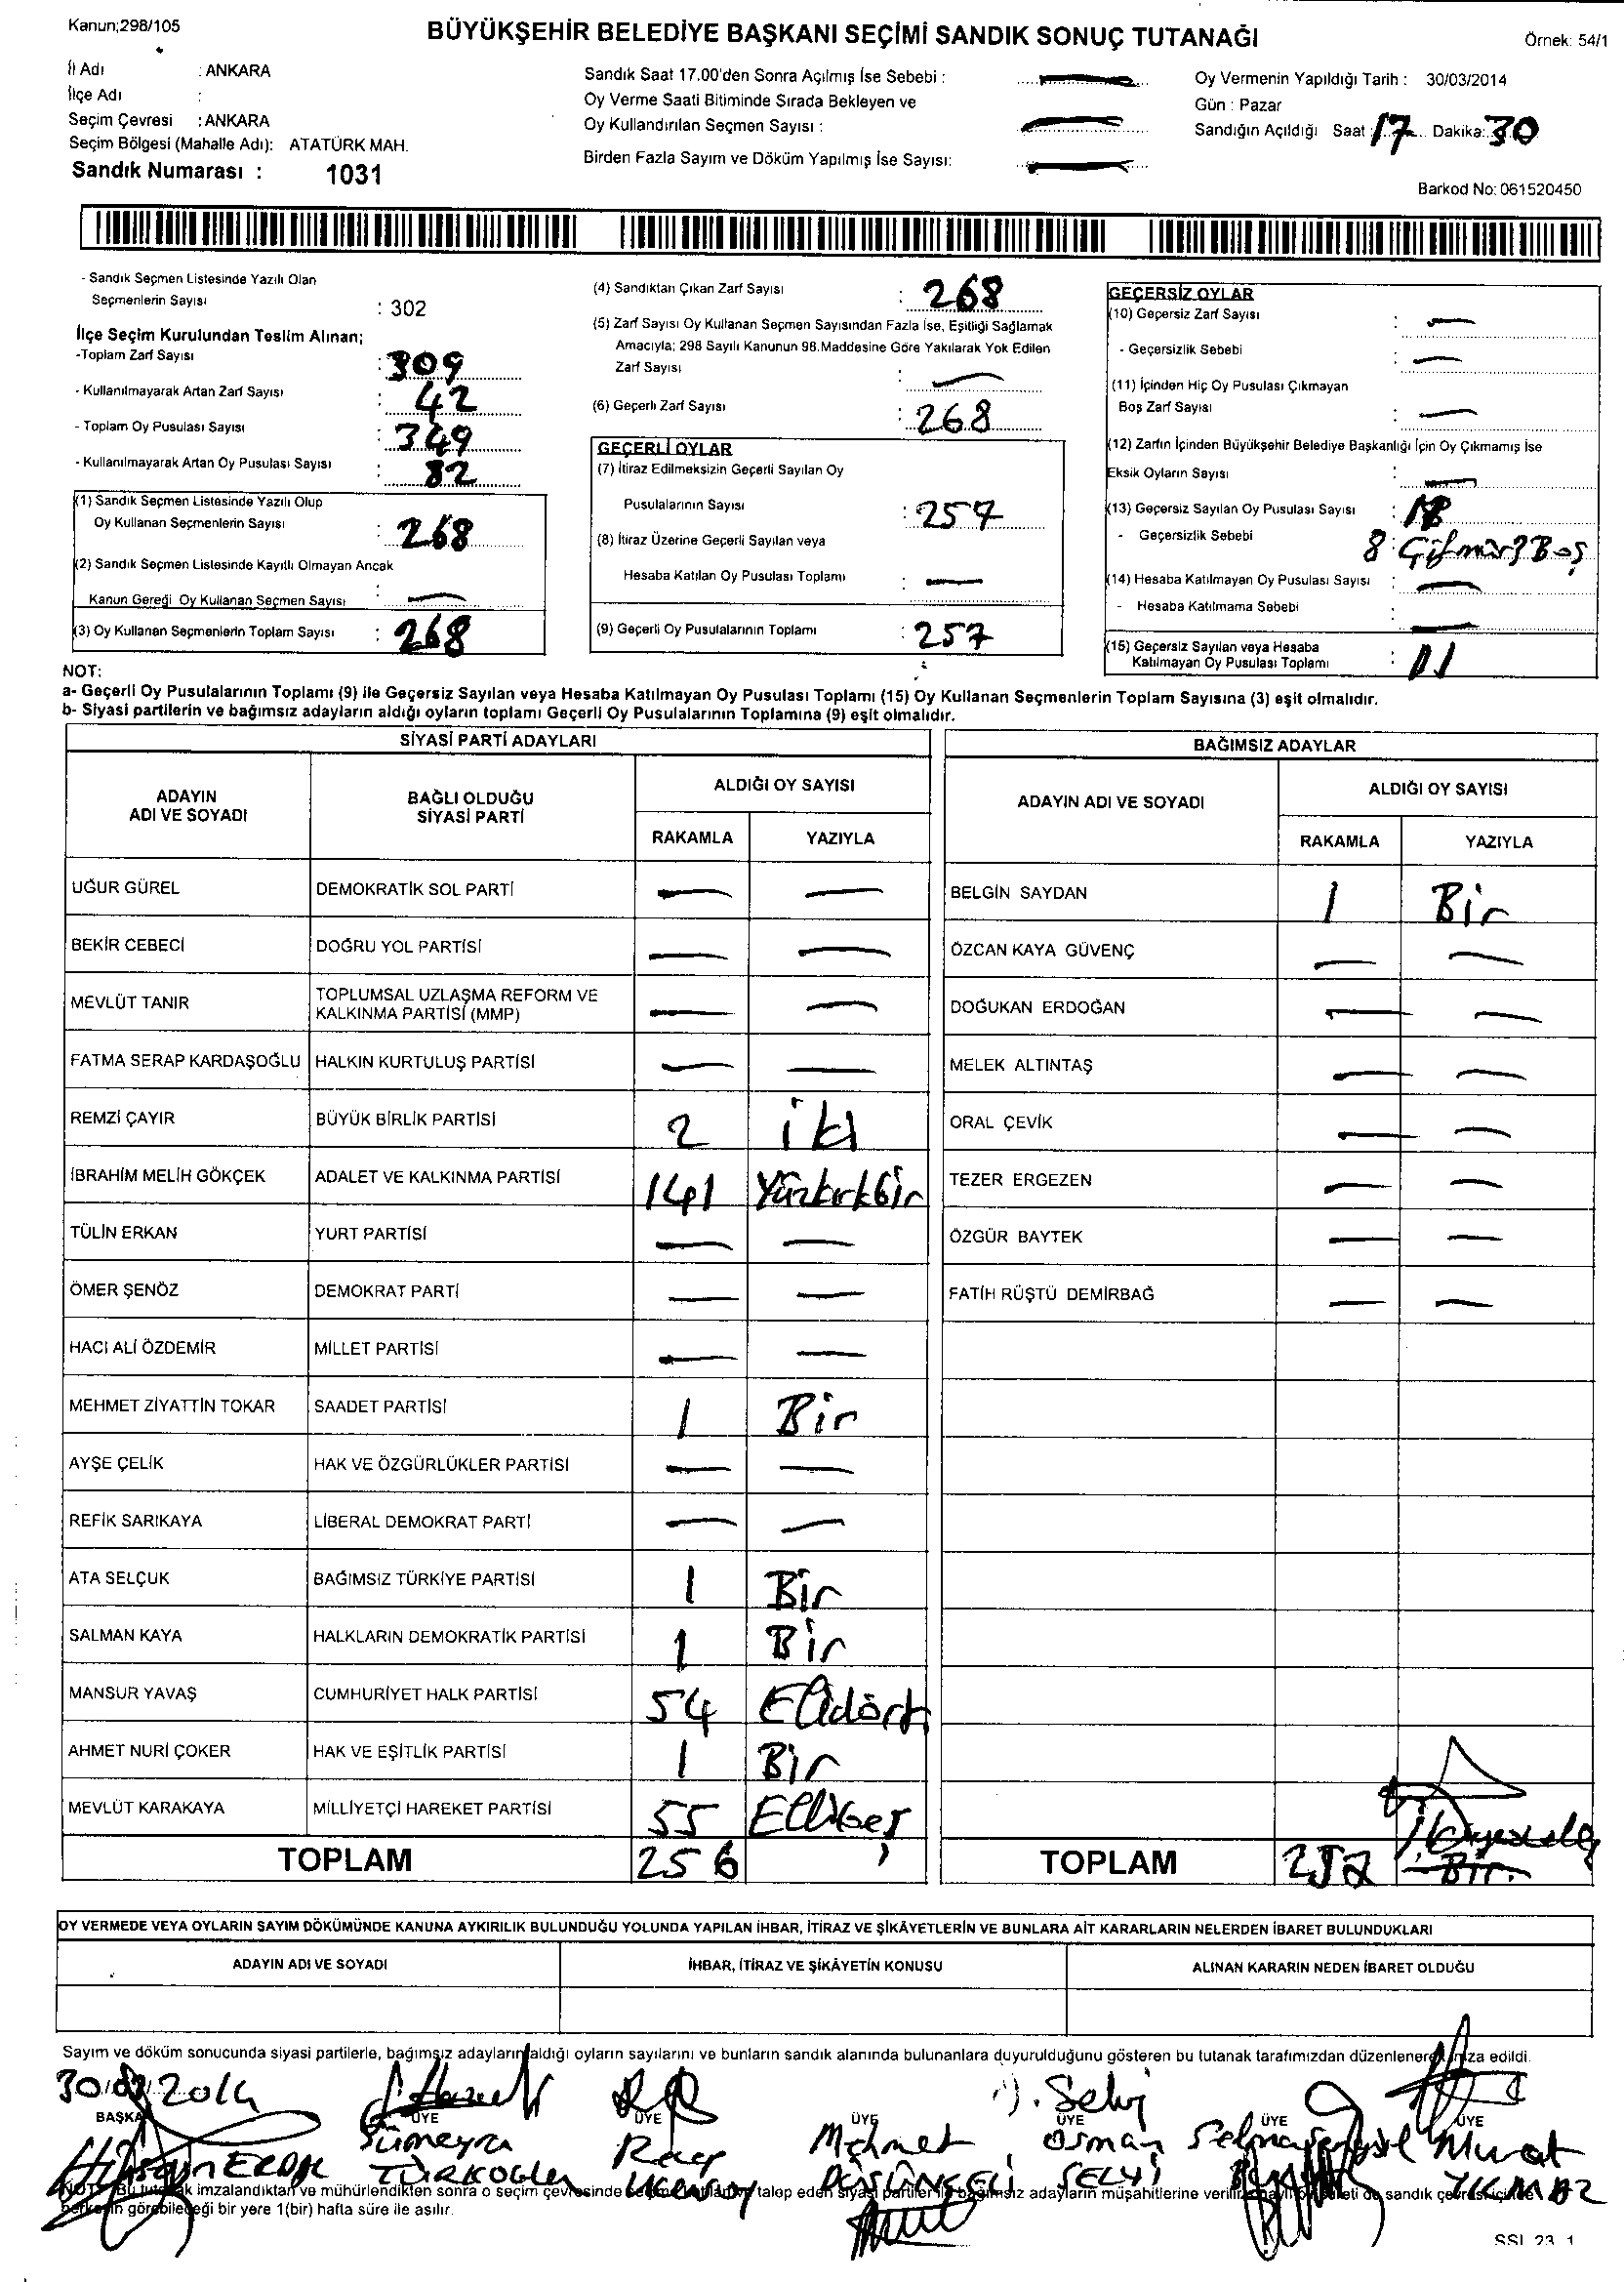 Kanun;298/105
BÜYÜKŞEHİR BELEDİYE BAŞKANI SEÇİMİ SANDIK SONUÇ TUTANAĞI
Örnek: 54/1
İl Adı : ANKARA
İlçe Adı :
Seçim Çevresi : ANKARA
Seçim Bölgesi (Mahalle Adı): ATATÜRK MAH.
Sandık Numarası : 1031
Sandık Saat 17.00'den Sonra Açılmış İse Sebebi :
Oy Verme Saati Bitiminde Sırada Bekleyen ve
Oy Kullandırılan Seçmen Sayısı :
Birden Fazla Sayım ve Döküm Yapılmış İse Sayısı:
Oy Vermenin Yapıldığı Tarih : 30/03/2014
Gün : Pazar
Sandığın Açıldığı Saat : 17 Dakika: 30
Barkod No: 061520450
- Sandık Seçmen Listesinde Yazılı Olan
Seçmenlerin Sayısı : 302
İlçe Seçim Kurulundan Teslim Alınan;
-Toplam Zarf Sayısı : 309
- Kullanılmayarak Artan Zarf Sayısı : 42
- Toplam Oy Pusulası Sayısı : 349
- Kullanılmayarak Artan Oy Pusulası Sayısı : 82
(1) Sandık Seçmen Listesinde Yazılı Olup
Oy Kullanan Seçmenlerin Sayısı : 268
(2) Sandık Seçmen Listesinde Kayıtlı Olmayan Ancak
Kanun Gereği Oy Kullanan Seçmen Sayısı :
(3) Oy Kullanan Seçmenlerin Toplam Sayısı : 268
(4) Sandıktan Çıkan Zarf Sayısı : 268
(5) Zarf Sayısı Oy Kullanan Seçmen Sayısından Fazla İse, Eşitliği Sağlamak
Amacıyla; 298 Sayılı Kanunun 98.Maddesine Göre Yakılarak Yok Edilen
Zarf Sayısı :
(6) Geçerli Zarf Sayısı : 268
GEÇERLİ OYLAR
(7) İtiraz Edilmeksizin Geçerli Sayılan Oy
Pusulalarının Sayısı : 257
(8) İtiraz Üzerine Geçerli Sayılan veya
Hesaba Katılan Oy Pusulası Toplamı :
(9) Geçerli Oy Pusulalarının Toplamı : 257
GEÇERSİZ OYLAR
(10) Geçersiz Zarf Sayısı :
- Geçersizlik Sebebi :
(11) İçinden Hiç Oy Pusulası Çıkmayan
Boş Zarf Sayısı :
(12) Zarfın İçinden Büyükşehir Belediye Başkanlığı İçin Oy Çıkmamış İse
Eksik Oyların Sayısı :
(13) Geçersiz Sayılan Oy Pusulası Sayısı :
- Geçersizlik Sebebi 8 : 3 Boş
(14) Hesaba Katılmayan Oy Pusulası Sayısı :
- Hesaba Katılmama Sebebi :
(15) Geçersiz Sayılan veya Hesaba
Katılmayan Oy Pusulası Toplamı : 11
NOT:
a- Geçerli Oy Pusulalarının Toplamı (9) ile Geçersiz Sayılan veya Hesaba Katılmayan Oy Pusulası Toplamı (15) Oy Kullanan Seçmenlerin Toplam Sayısına (3) eşit olmalıdır.
b- Siyasi partilerin ve bağımsız adayların aldığı oyların toplamı Geçerli Oy Pusulalarının Toplamına (9) eşit olmalıdır.
SİYASİ PARTİ ADAYLARI
ADAYIN ADI VE SOYADI
BAĞLI OLDUĞU SİYASİ PARTİ
ALDIĞI OY SAYISI
RAKAMLA YAZIYLA
UĞUR GÜREL DEMOKRATİK SOL PARTİ
BEKİR CEBECİ DOĞRU YOL PARTİSİ
MEVLÜT TANIR TOPLUMSAL UZLAŞMA REFORM VE
KALKINMA PARTİSİ (MMP)
FATMA SERAP KARDAŞOĞLU HALKIN KURTULUŞ PARTİSİ
REMZİ ÇAYIR BÜYÜK BİRLİK PARTİSİ 2 iki
İBRAHİM MELİH GÖKÇEK ADALET VE KALKINMA PARTİSİ 141 Yüzkırkbir
TÜLİN ERKAN YURT PARTİSİ
ÖMER ŞENÖZ DEMOKRAT PARTİ
HACI ALİ ÖZDEMİR MİLLET PARTİSİ
MEHMET ZİYATTİN TOKAR SAADET PARTİSİ 1 Bir
AYŞE ÇELİK HAK VE ÖZGÜRLÜKLER PARTİSİ
REFİK SARIKAYA LİBERAL DEMOKRAT PARTİ
ATA SELÇUK BAĞIMSIZ TÜRKİYE PARTİSİ 1 Bir
SALMAN KAYA HALKLARIN DEMOKRATİK PARTİSİ 1 Bir
MANSUR YAVAŞ CUMHURİYET HALK PARTİSİ 54 Ellidört
AHMET NURİ ÇOKER HAK VE EŞİTLİK PARTİSİ 1 Bir
MEVLÜT KARAKAYA MİLLİYETÇİ HAREKET PARTİSİ 55 Ellibeş
TOPLAM 256
BAĞIMSIZ ADAYLAR
ADAYIN ADI VE SOYADI
ALDIĞI OY SAYISI
RAKAMLA YAZIYLA
BELGİN SAYDAN 1 Bir
ÖZCAN KAYA GÜVENÇ
DOĞUKAN ERDOĞAN
MELEK ALTINTAŞ
ORAL ÇEVİK
TEZER ERGEZEN
ÖZGÜR BAYTEK
FATİH RÜŞTÜ DEMİRBAĞ
TOPLAM 257 Bir
OY VERMEDE VEYA OYLARIN SAYIM DÖKÜMÜNDE KANUNA AYKIRILIK BULUNDUĞU YOLUNDA YAPILAN İHBAR, İTİRAZ VE ŞİKÂYETLERİN VE BUNLARA AİT KARARLARIN NELERDEN İBARET BULUNDUKLARI
ADAYIN ADI VE SOYADI
İHBAR, İTİRAZ VE ŞİKÂYETİN KONUSU
ALINAN KARARIN NEDEN İBARET OLDUĞU
Sayım ve döküm sonucunda siyasi partilerle, bağımsız adayların aldığı oyların sayılarını ve bunların sandık alanında bulunanlara duyurulduğunu gösteren bu tutanak tarafımızdan düzenlenerek imza edildi.
30/03/2014
BAŞKAN ÜYE ÜYE ÜYE ÜYE ÜYE ÜYE
Sümeyra Mehmet Osman Murat
TÜRKOĞLU SELVİ YILMAZ
NOT: Bu tutanak imzalandıktan ve mühürlendikten sonra o seçim çevresinde talep eden siyasi partiler ile bağımsız adayların müşahitlerine verilir. sandık çevresi içinde
herkesin görebileceği bir yere 1(bir) hafta süre ile asılır.